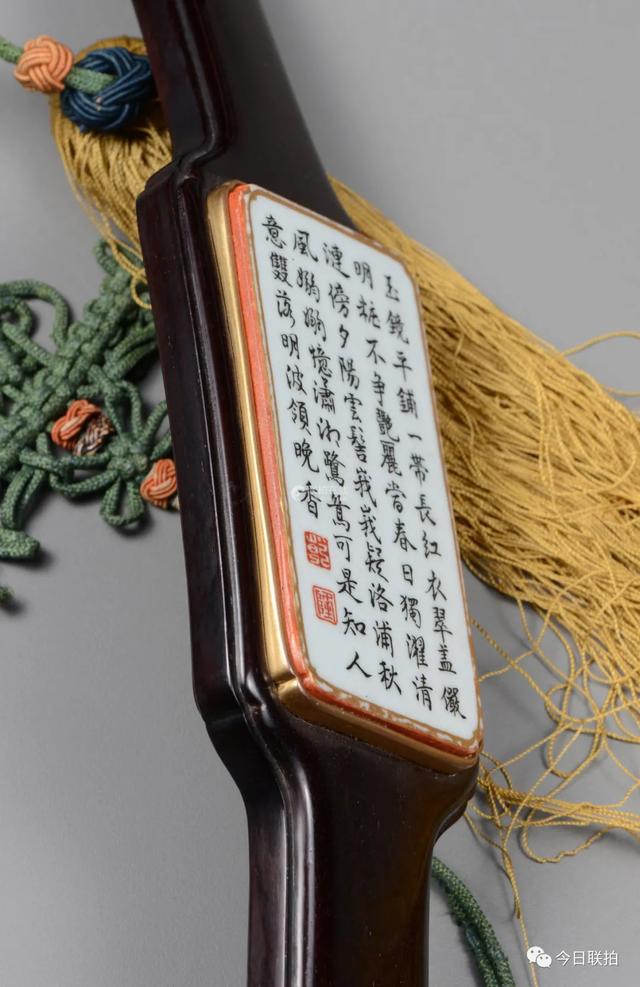 玉鏡平鋪一帶長紅衣翠蓋儼
明粧不争艷麗當春日獨濯清
漣傍夕陽雲髻峩峩疑洛浦秋
風嫋嫋憶瀟湘鷺鷥可是知人
意雙落明波領晚香
乾
隆
今日联拍